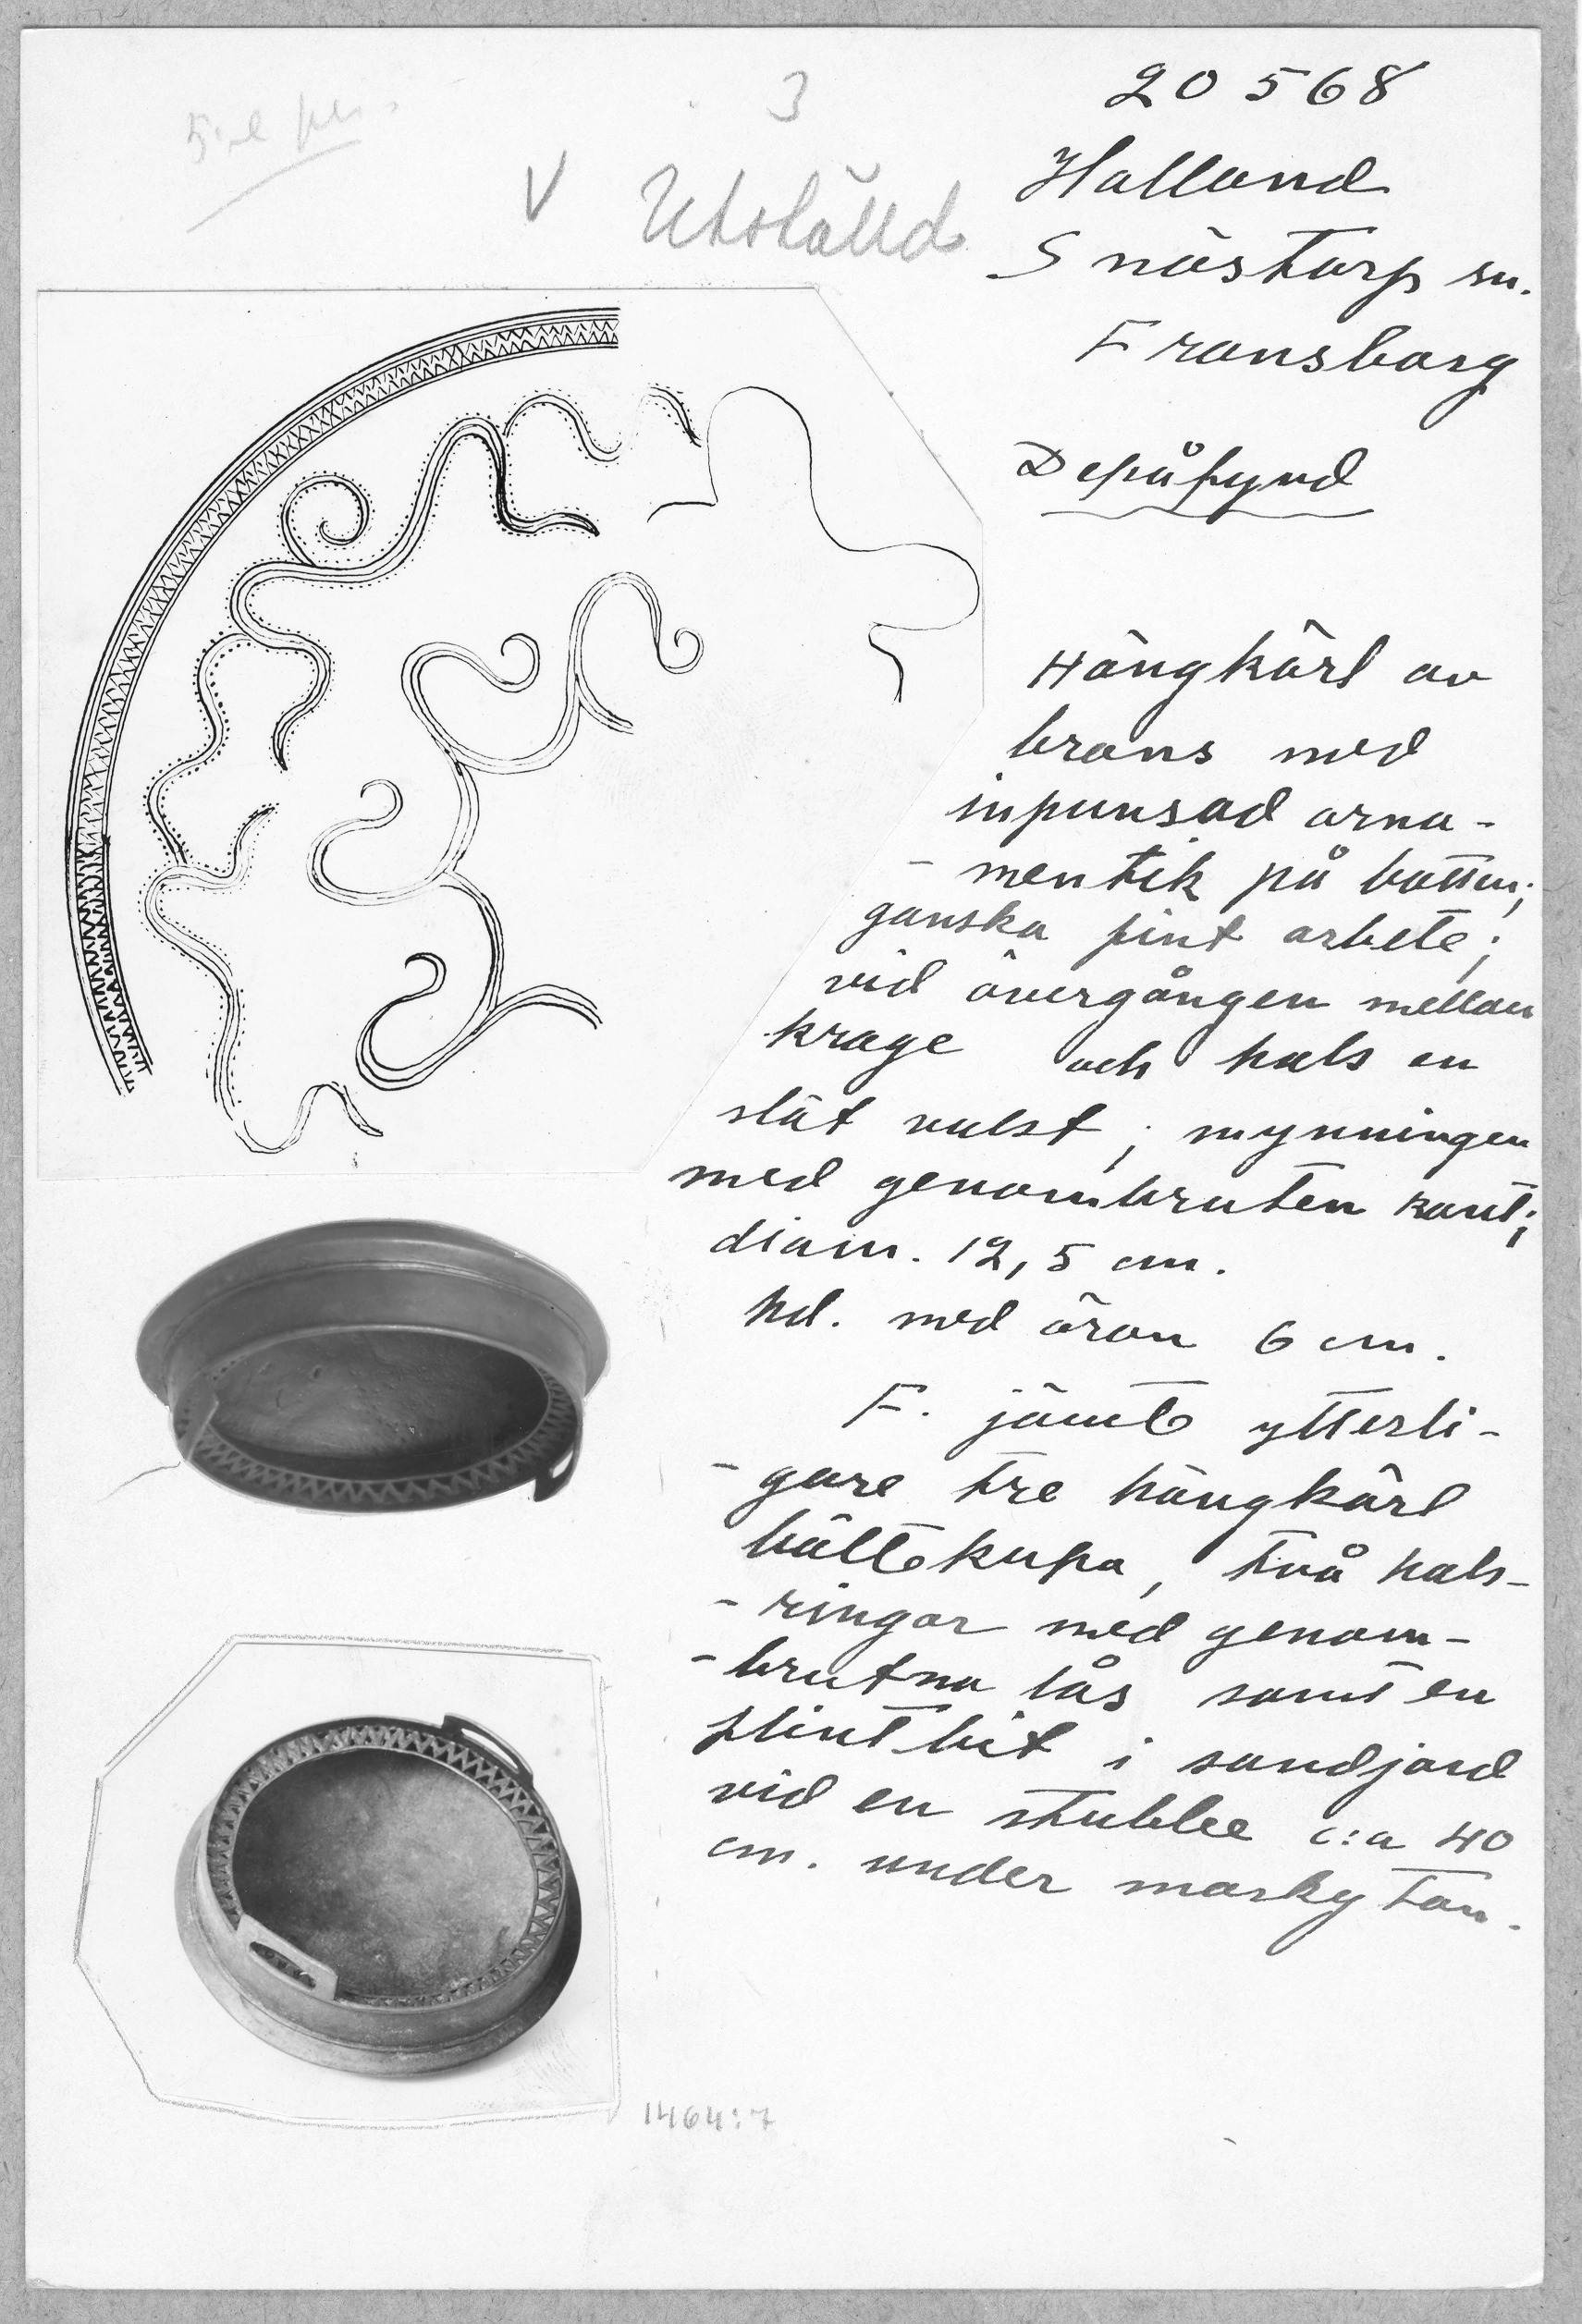 3
V Utställd
20 568
Halland
Snöstorp sn.
Fransborg
Depåfynd
Hängkärl av
brons med
inpunsad orna-
-mentik på botten;
ganska fint arbete;
vid övergången mellan
krage och hals en
slät vulst; mynningen
med genombruten kant;
diam. 12,5 cm.
hd. med öron 6 cm.
F. jämte ytterli-
-gare tre hängkärl
bältekupa, två hals-
-ringar med genom-
-brutna lås samt en
flintbit i sandjord
vid en stubbe c:a 40
cm. under markytan.
1464:7